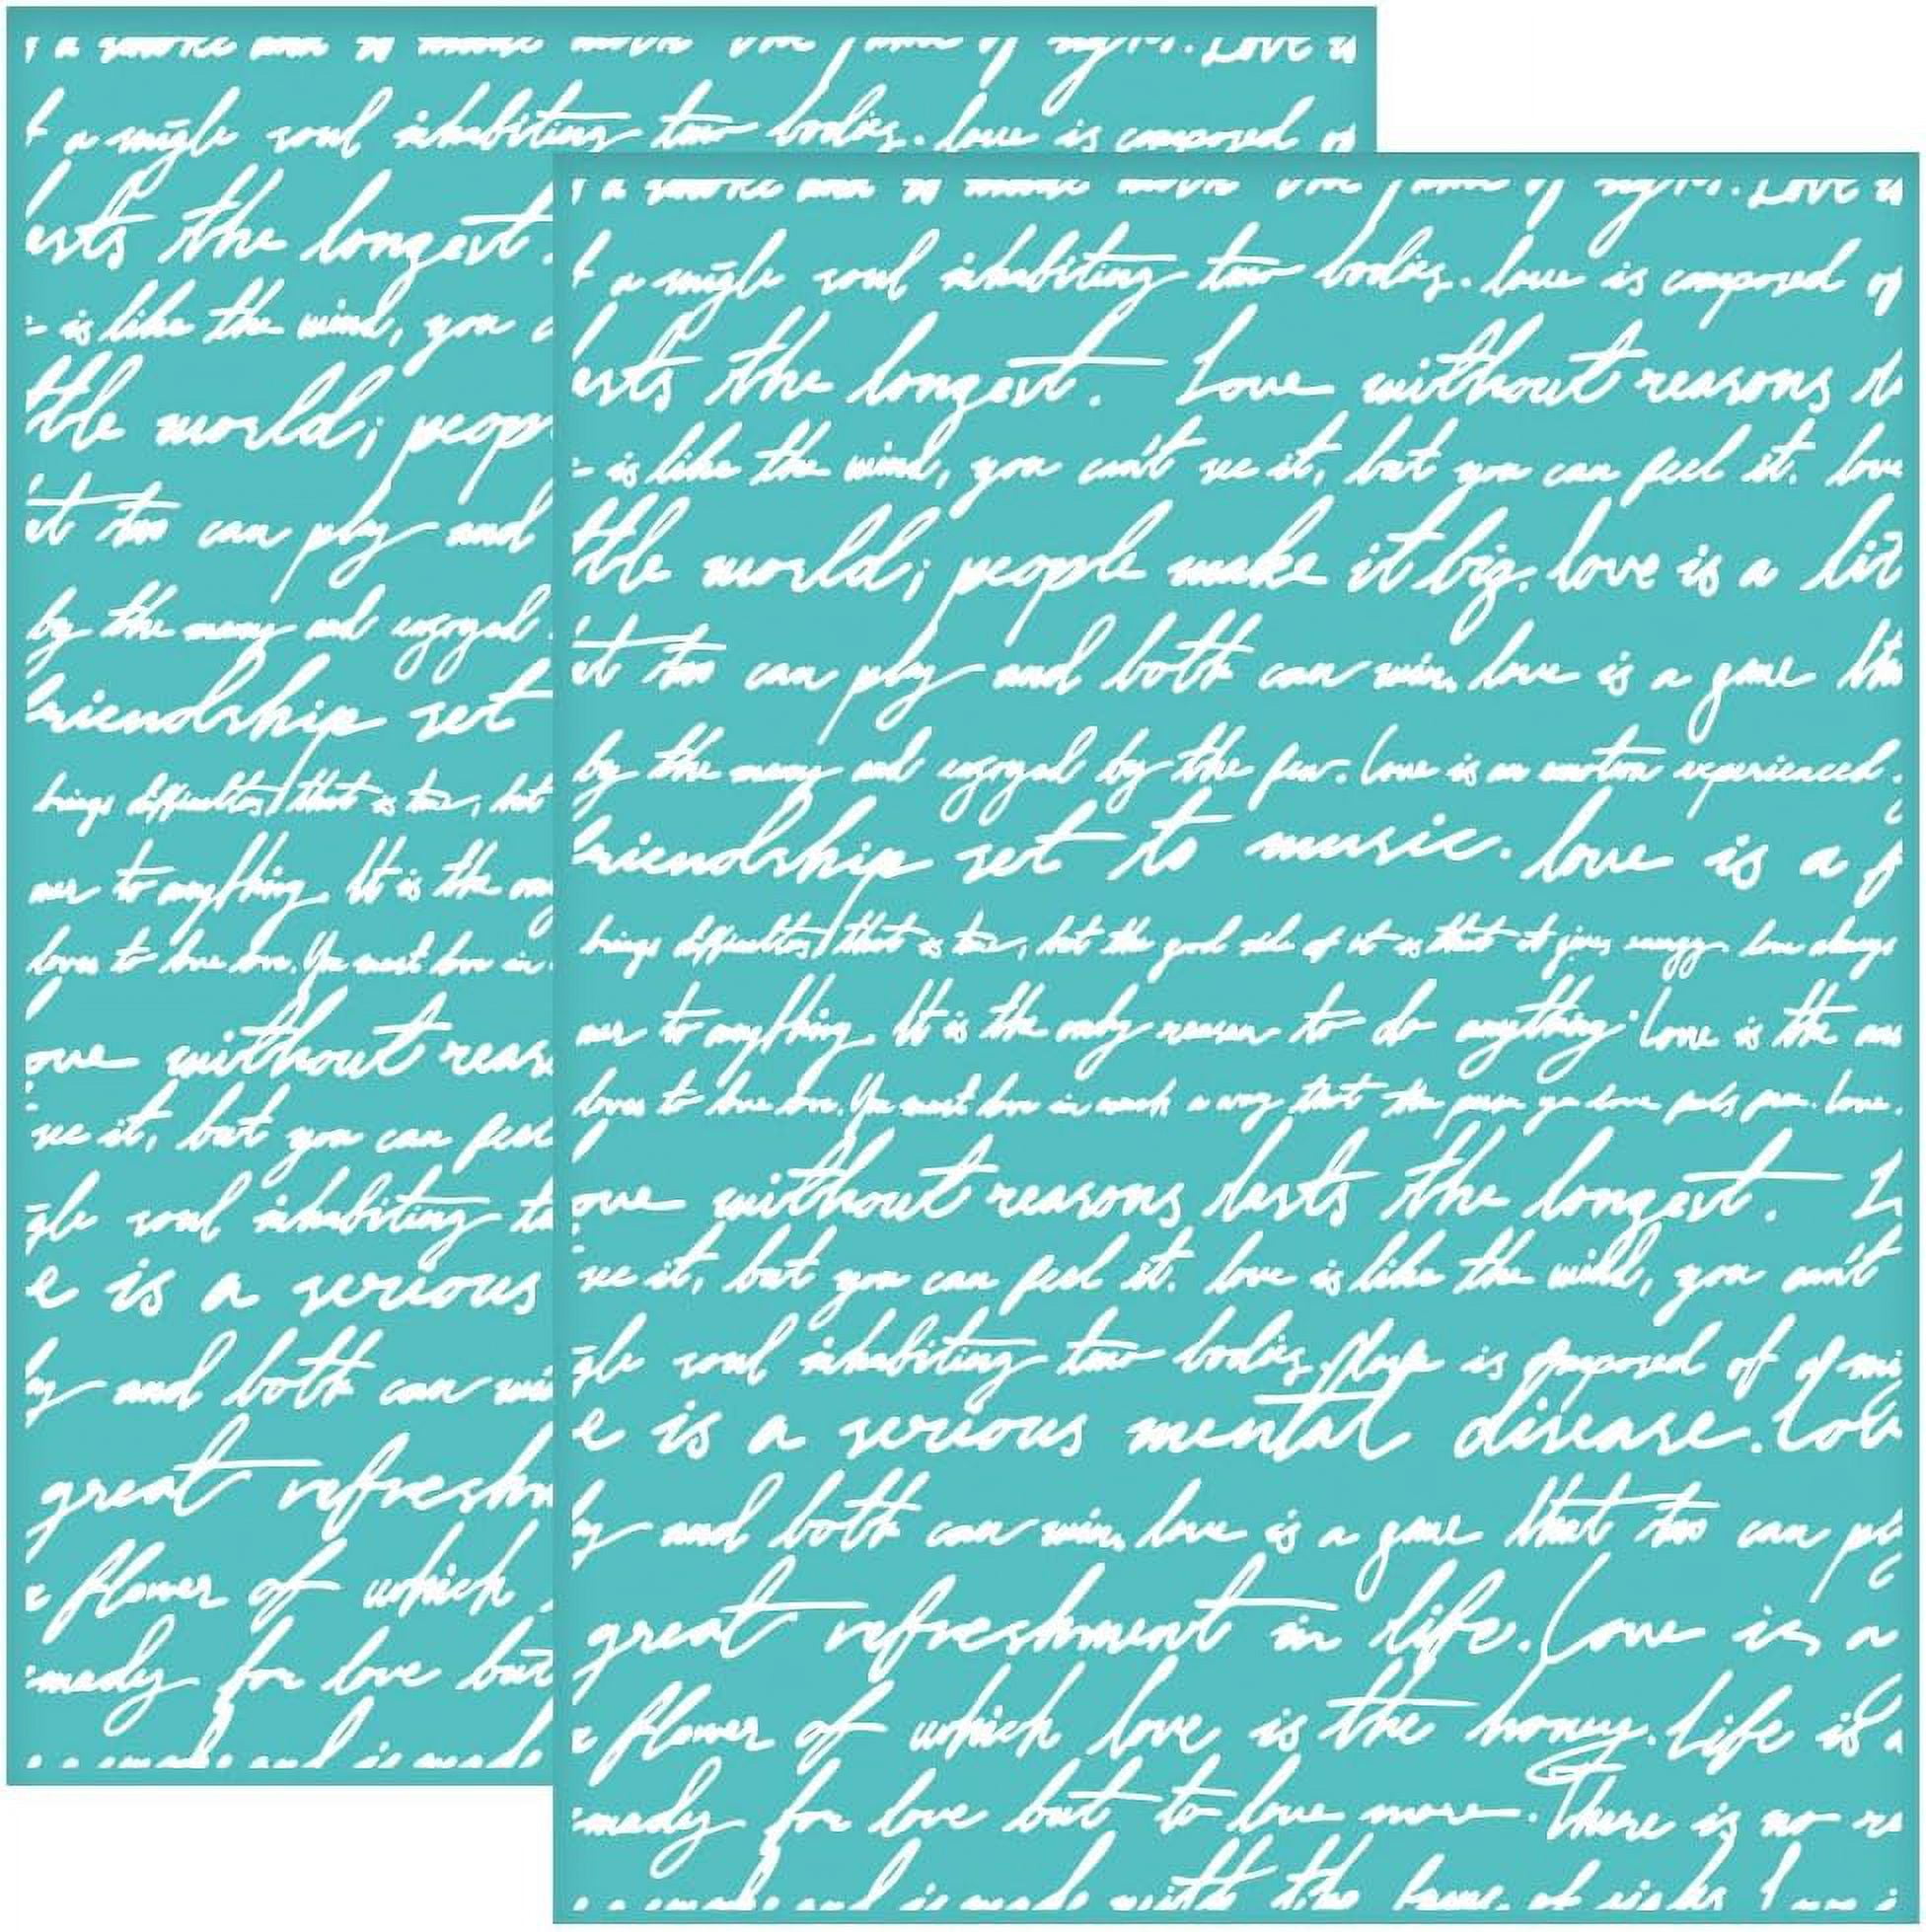 Love is
a single soul inhabiting two bodies. love is composed of
the longest.
is like the wind, you
the world; peop
too can play and
by the many and enjoyed
friendship set
brings difficulties that is true, but
to anything. It is the
loves to love love. You must love in
ove without reas
see it, but you can feel
gle soul inhabiting
e is a serious
and both can win
great refreshm
flower of which
medy for love but
and is made
Love is
a single soul inhabiting two bodies. love is composed of
the longest. Love without reasons
is like the wind, you can't see it, but you can feel it. love
tle world; people make it big. love is a lit
too can play and both can win. love is a game
by the many and enjoyed by the few. Love is an emotion experienced
friendship set to music. love is a f
brings difficulties, that is true, but the good side of it is that it gives energy. love always
to anything. It is the only reason to do anything. Love is the
loves to love love. You must love in such a way that the person you love feels free. love
ove without reasons lasts the longest. L
see it, but you can feel it. love is like the wind, you can't
gle soul inhabiting two bodies. Love is composed of
e is a serious mental disease. Lov
and both can win. love is a game that two can pl
great refreshment in life. Love is a
flower of which love is the honey. life is a
medy for love but to love more. There is no re
and is made with the